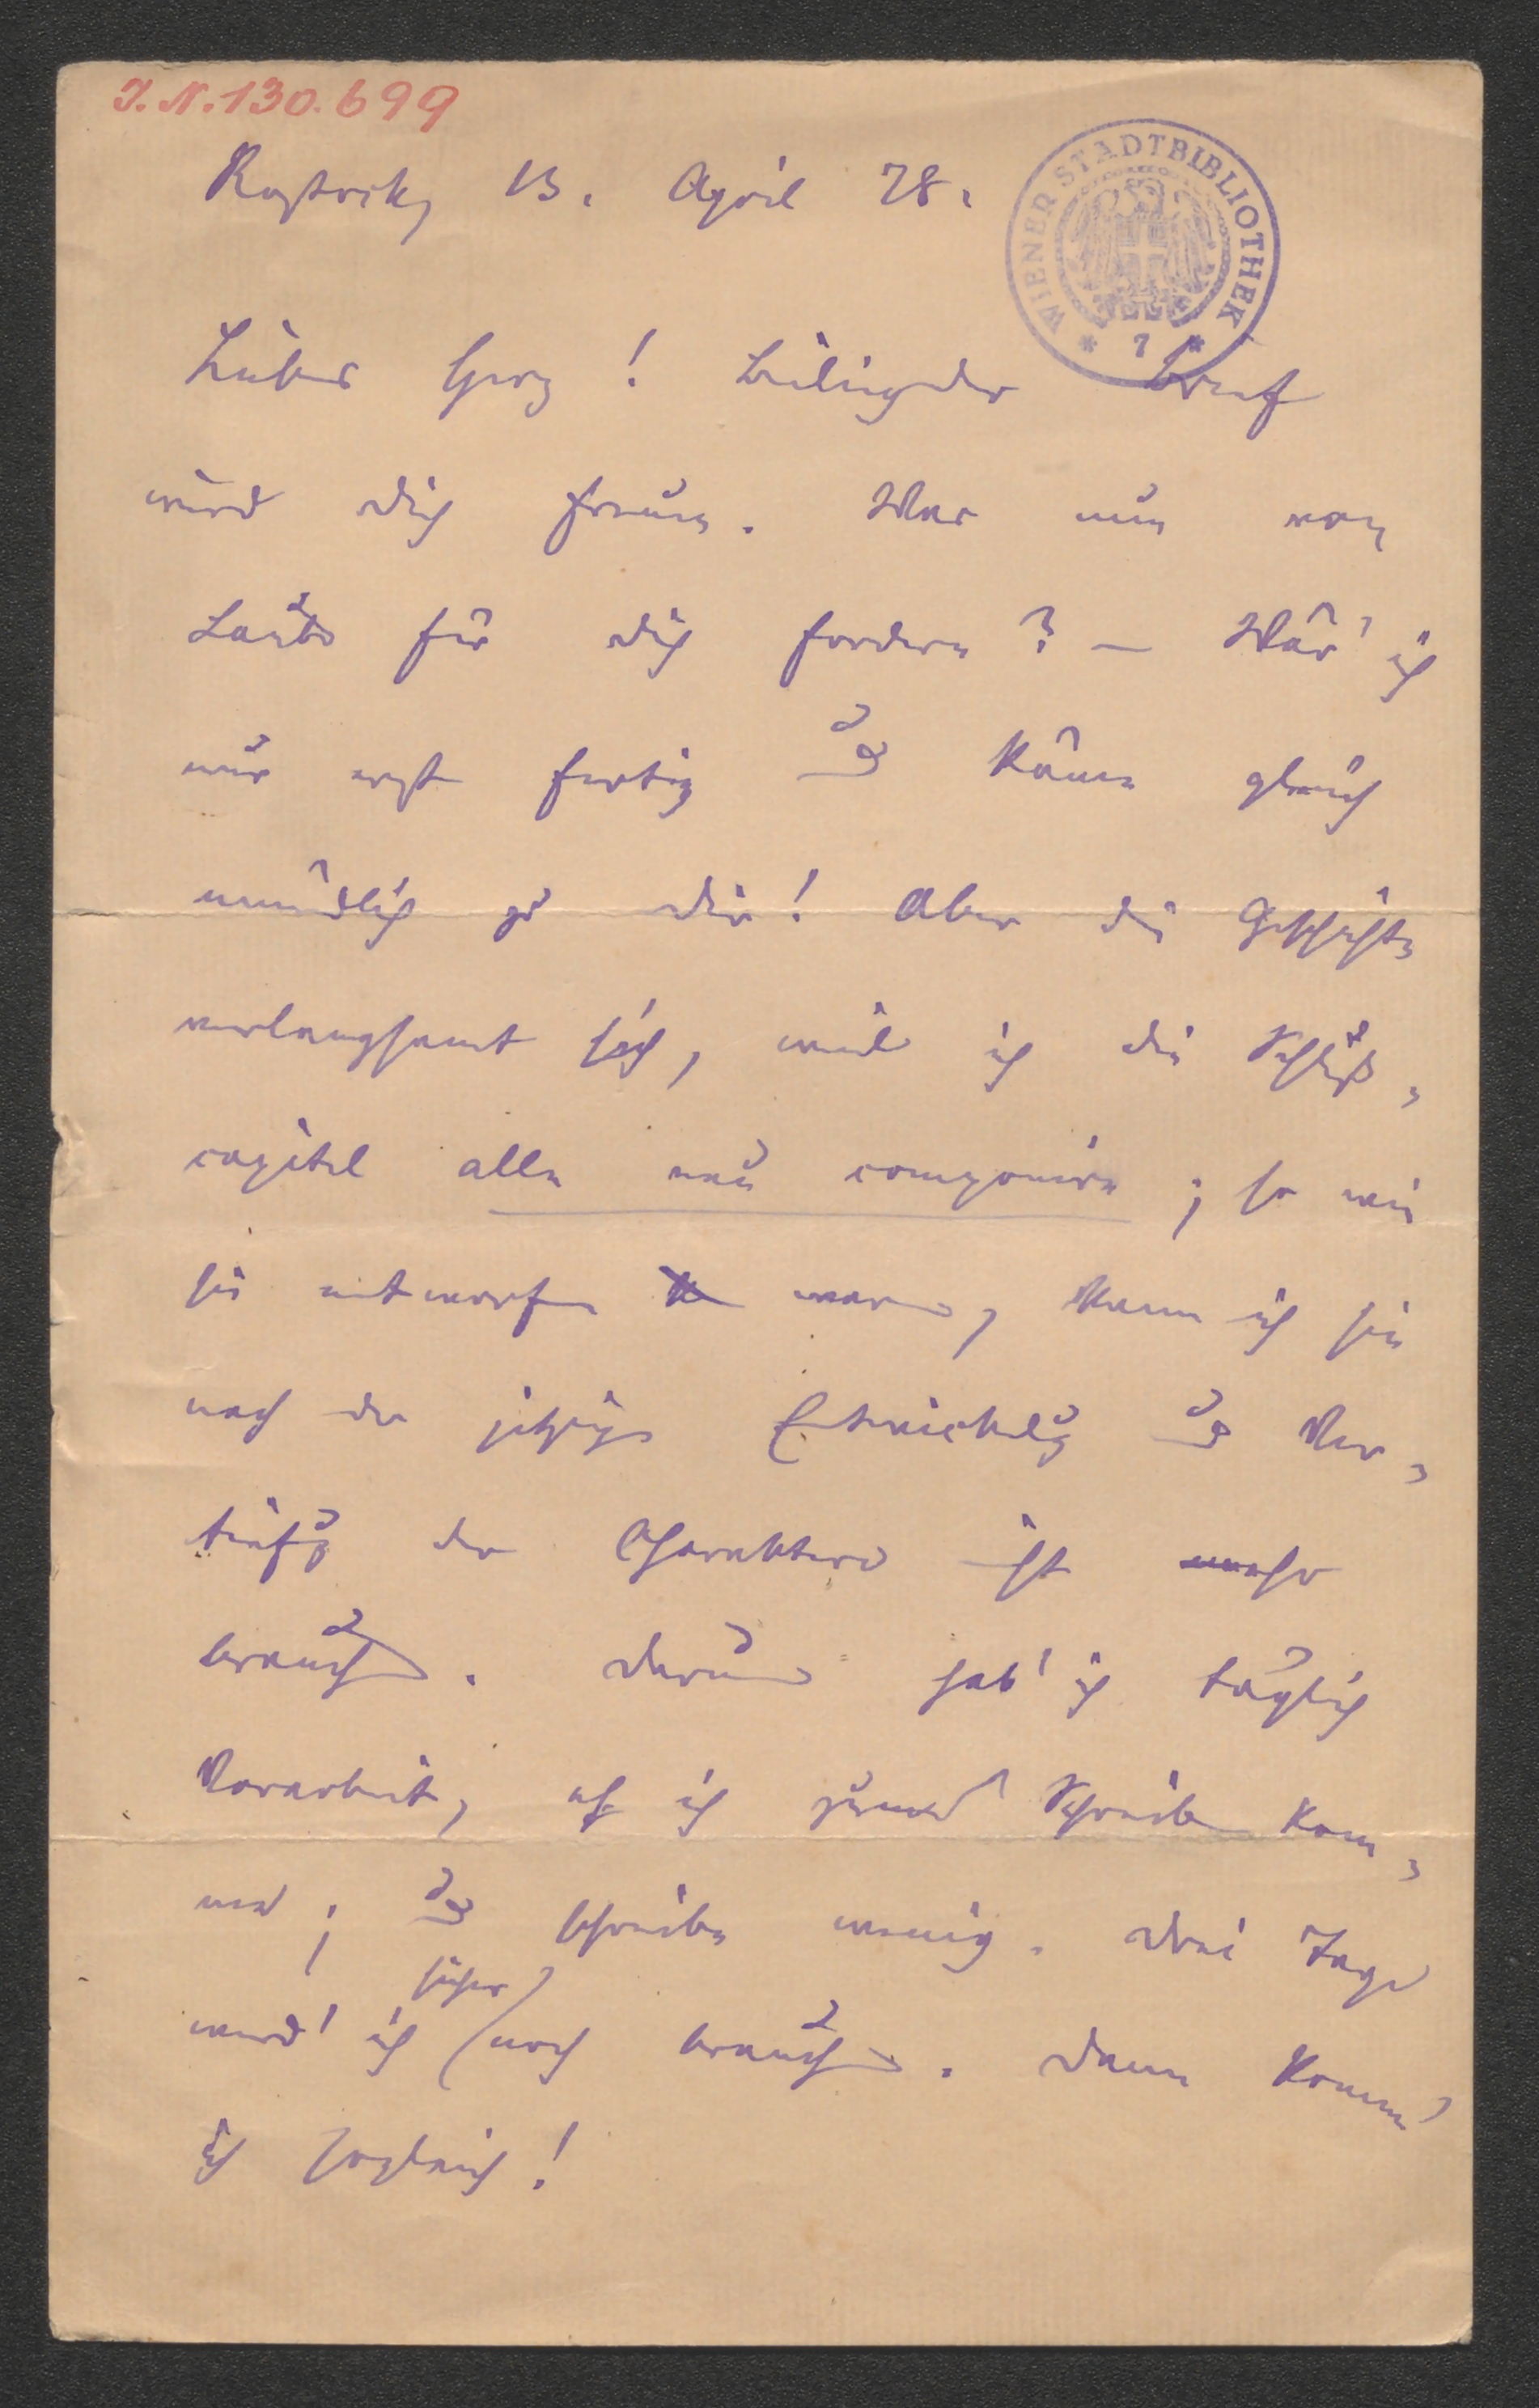 I. N. 130.699
WIENER STADTBIBLIOTHEK
* 7 *
Rostock, 13. April 78.
Liebes Herz! Beiliegender Brief
wird dich freuen. Was nun von
Laube für dich fordern? — Wär' ich
nur erst fertig und käme gleich
mündlich zu dir! Aber die Geschichte
verlangsamt sich, weil ich die Schluß-
capitel alle neu componire; so wie
sie entworfen waren, kann ich sie
nach der jetzigen Entwicklung und Ver-
tiefung der Charaktere nicht mehr
brauchen. Darum hab' ich täglich
Vorarbeit, eh ich zum Schreiben kom-
me; und schreibe wenig. Drei Tage
werd' ich sicher noch brauchen. Dann komm'
ich sogleich!